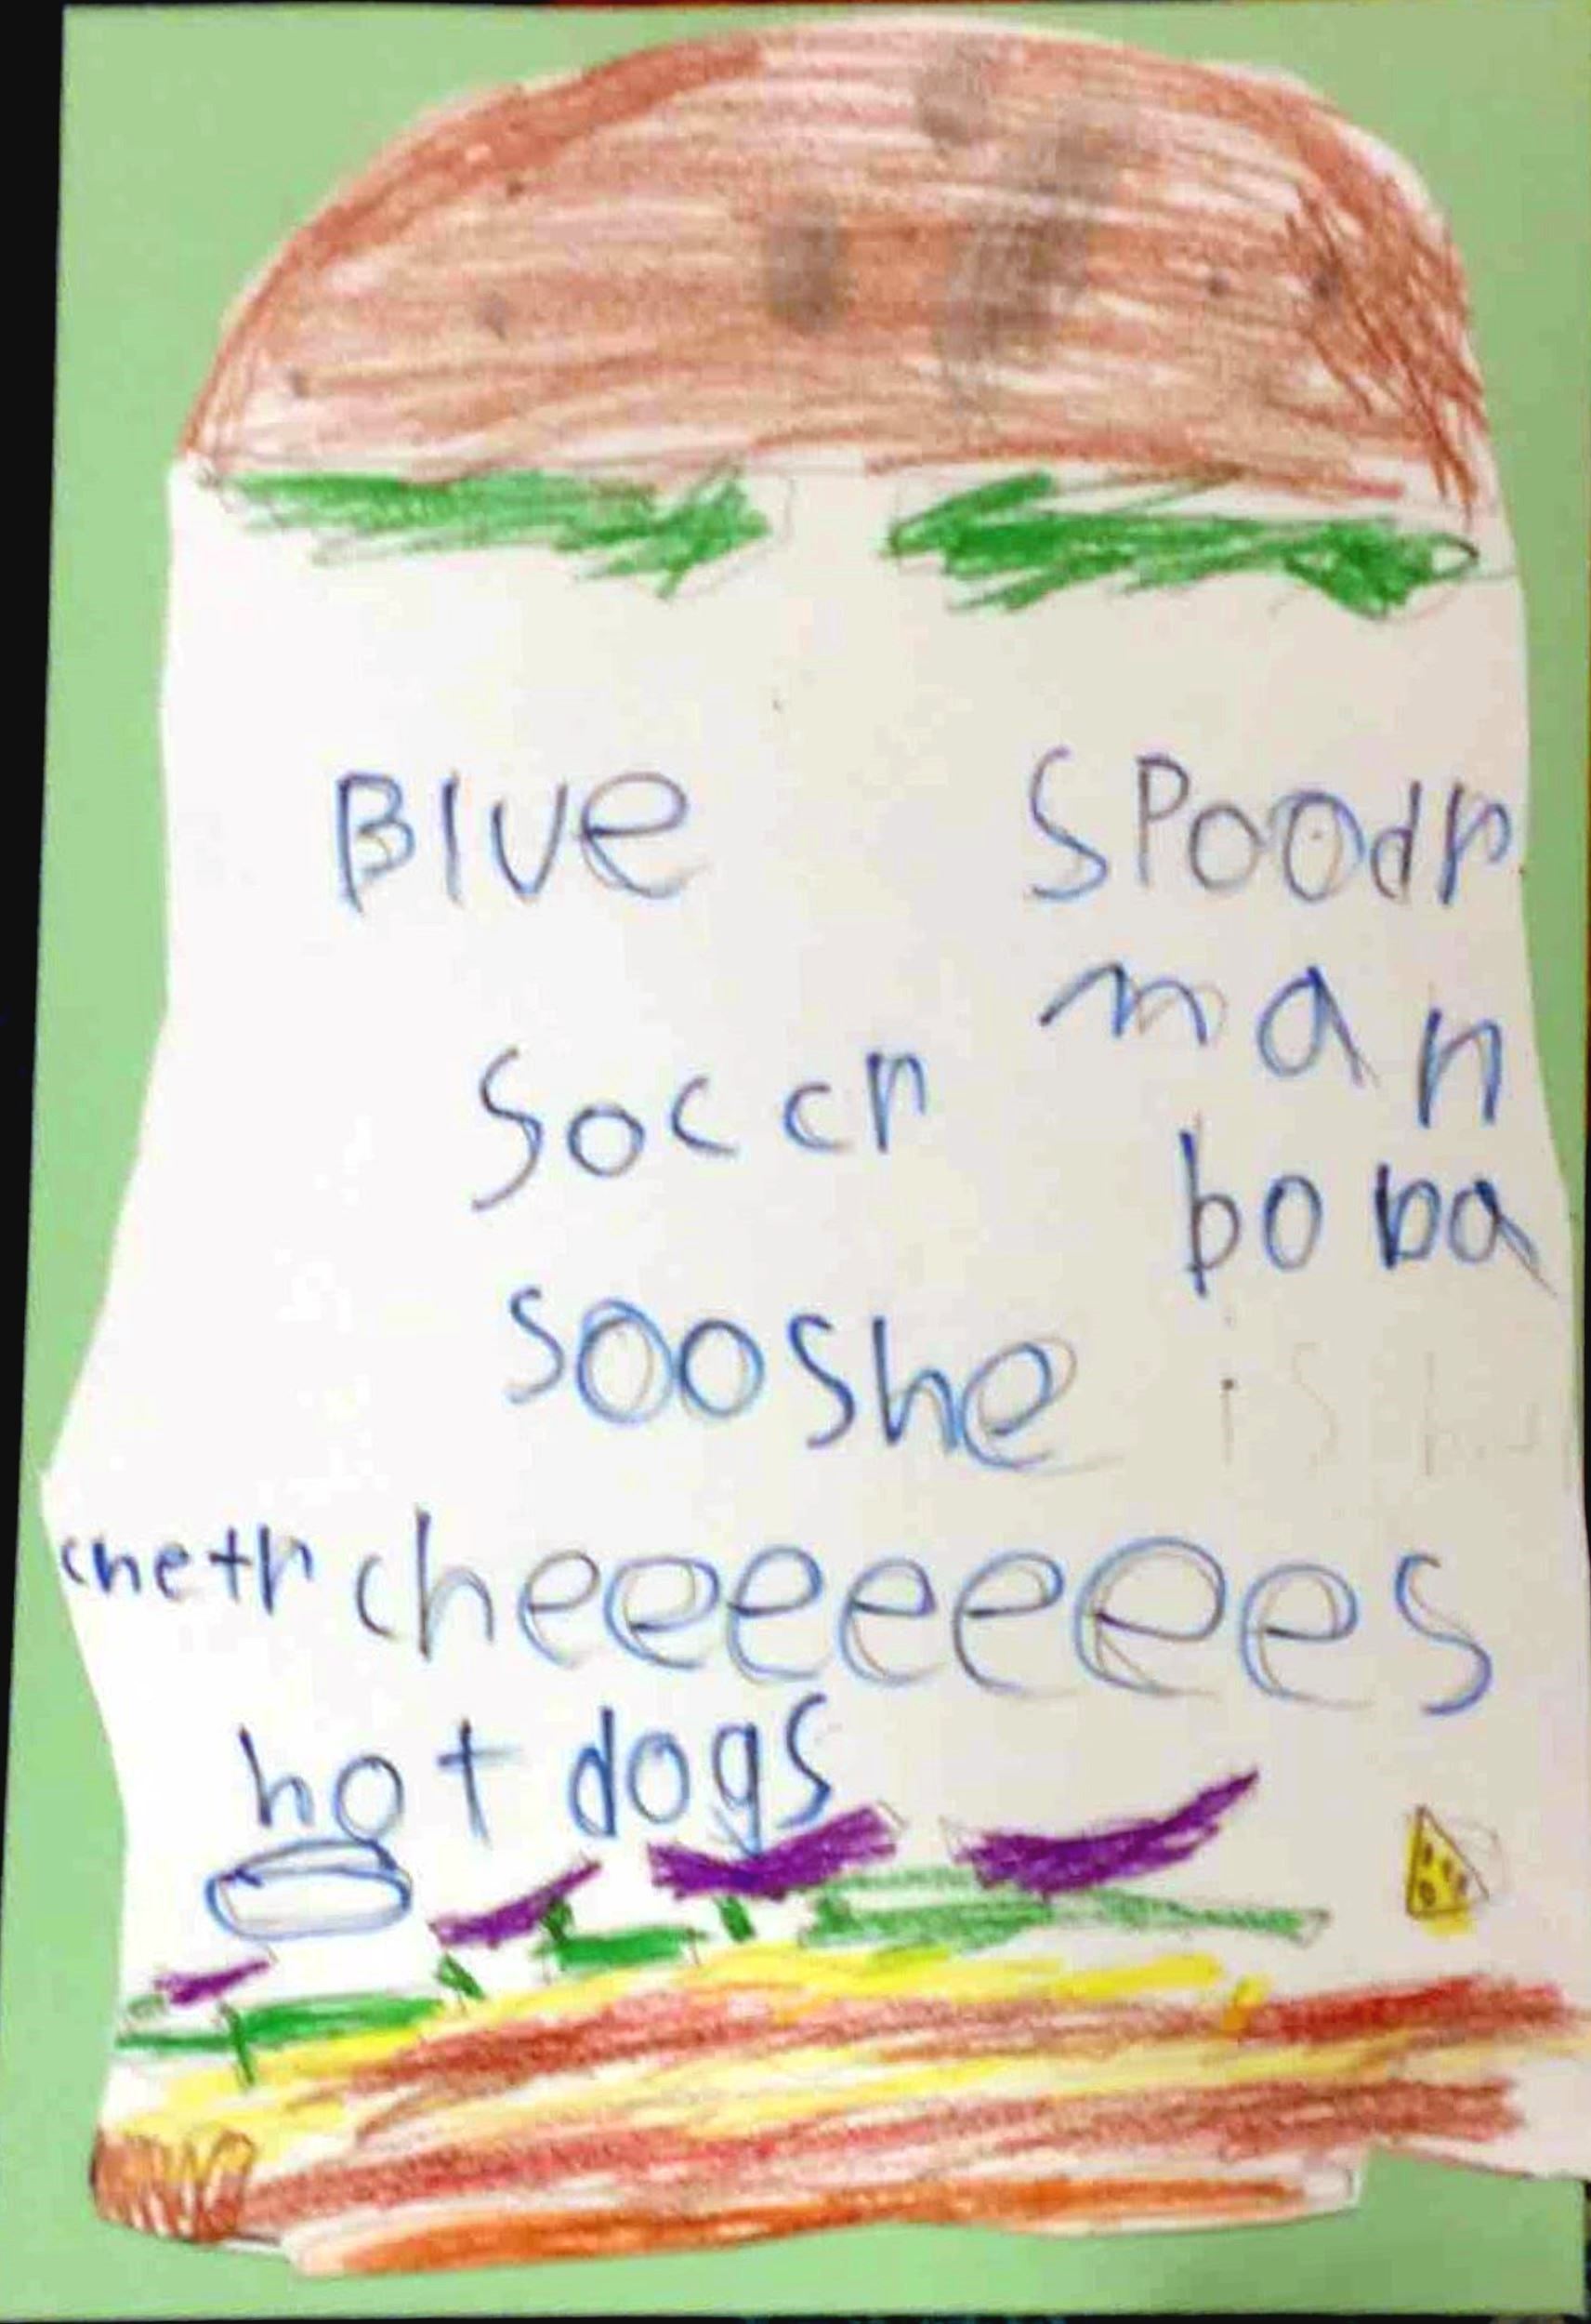 Blue
Spoodr
man
Soccr
boba
Sooshe
chetr cheeeeeeees
hot dogs